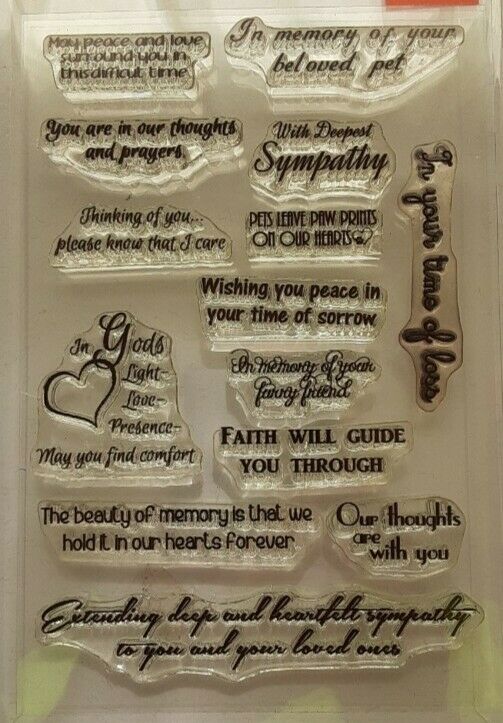 May peace and love
surround you in
this difficult time
In memory of your
beloved pet
You are in our thoughts
and prayers
With Deepest
Sympathy
In your time of loss
Thinking of you...
please know that I care
PETS LEAVE PAW PRINTS
ON OUR HEARTS
Wishing you peace in
your time of sorrow
In Gods
Light-
Love-
Presence-
May you find comfort
In memory of your
furry friend
FAITH WILL GUIDE
YOU THROUGH
The beauty of memory is that we
hold it in our hearts forever
Our thoughts
are
with you
Extending deep and heartfelt sympathy
to you and your loved ones